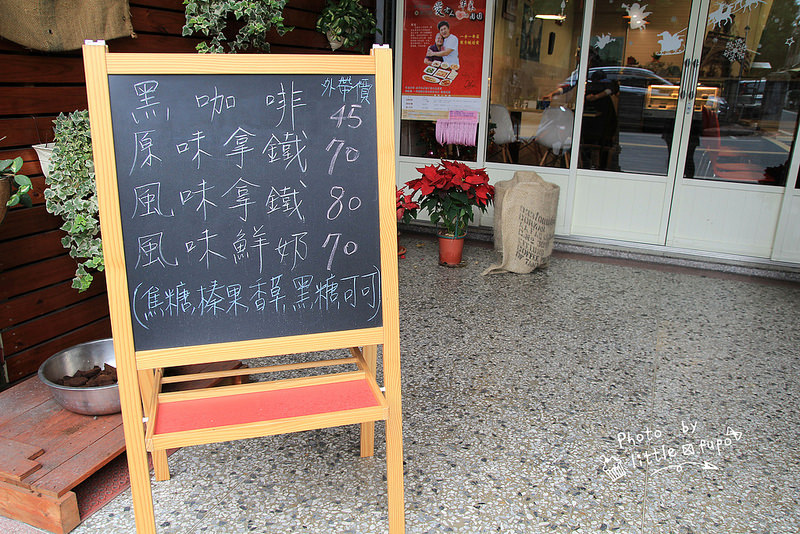 外帶價
黑咖啡 45
原味拿鐵 70
風味拿鐵 80
風味鮮奶 70
(焦糖,榛果,香草,黑糖,可可)
Photo by
little pupo